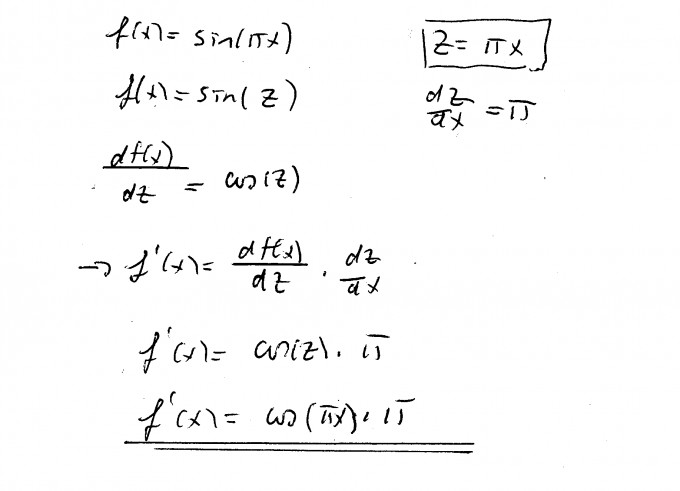 f(x) = sin(πx)
z = πx
f(x) = sin(z)
dz/dx = π
df(x)/dz = cos(z)
→ f'(x) = df(x)/dz · dz/dx
f'(x) = cos(z) · π
f'(x) = cos(πx) · π